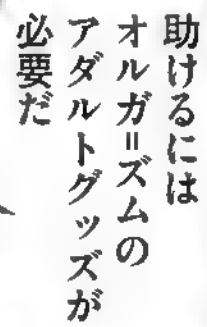 助けるには
オルガ=ズムの
アダルトグッズが
必要だ